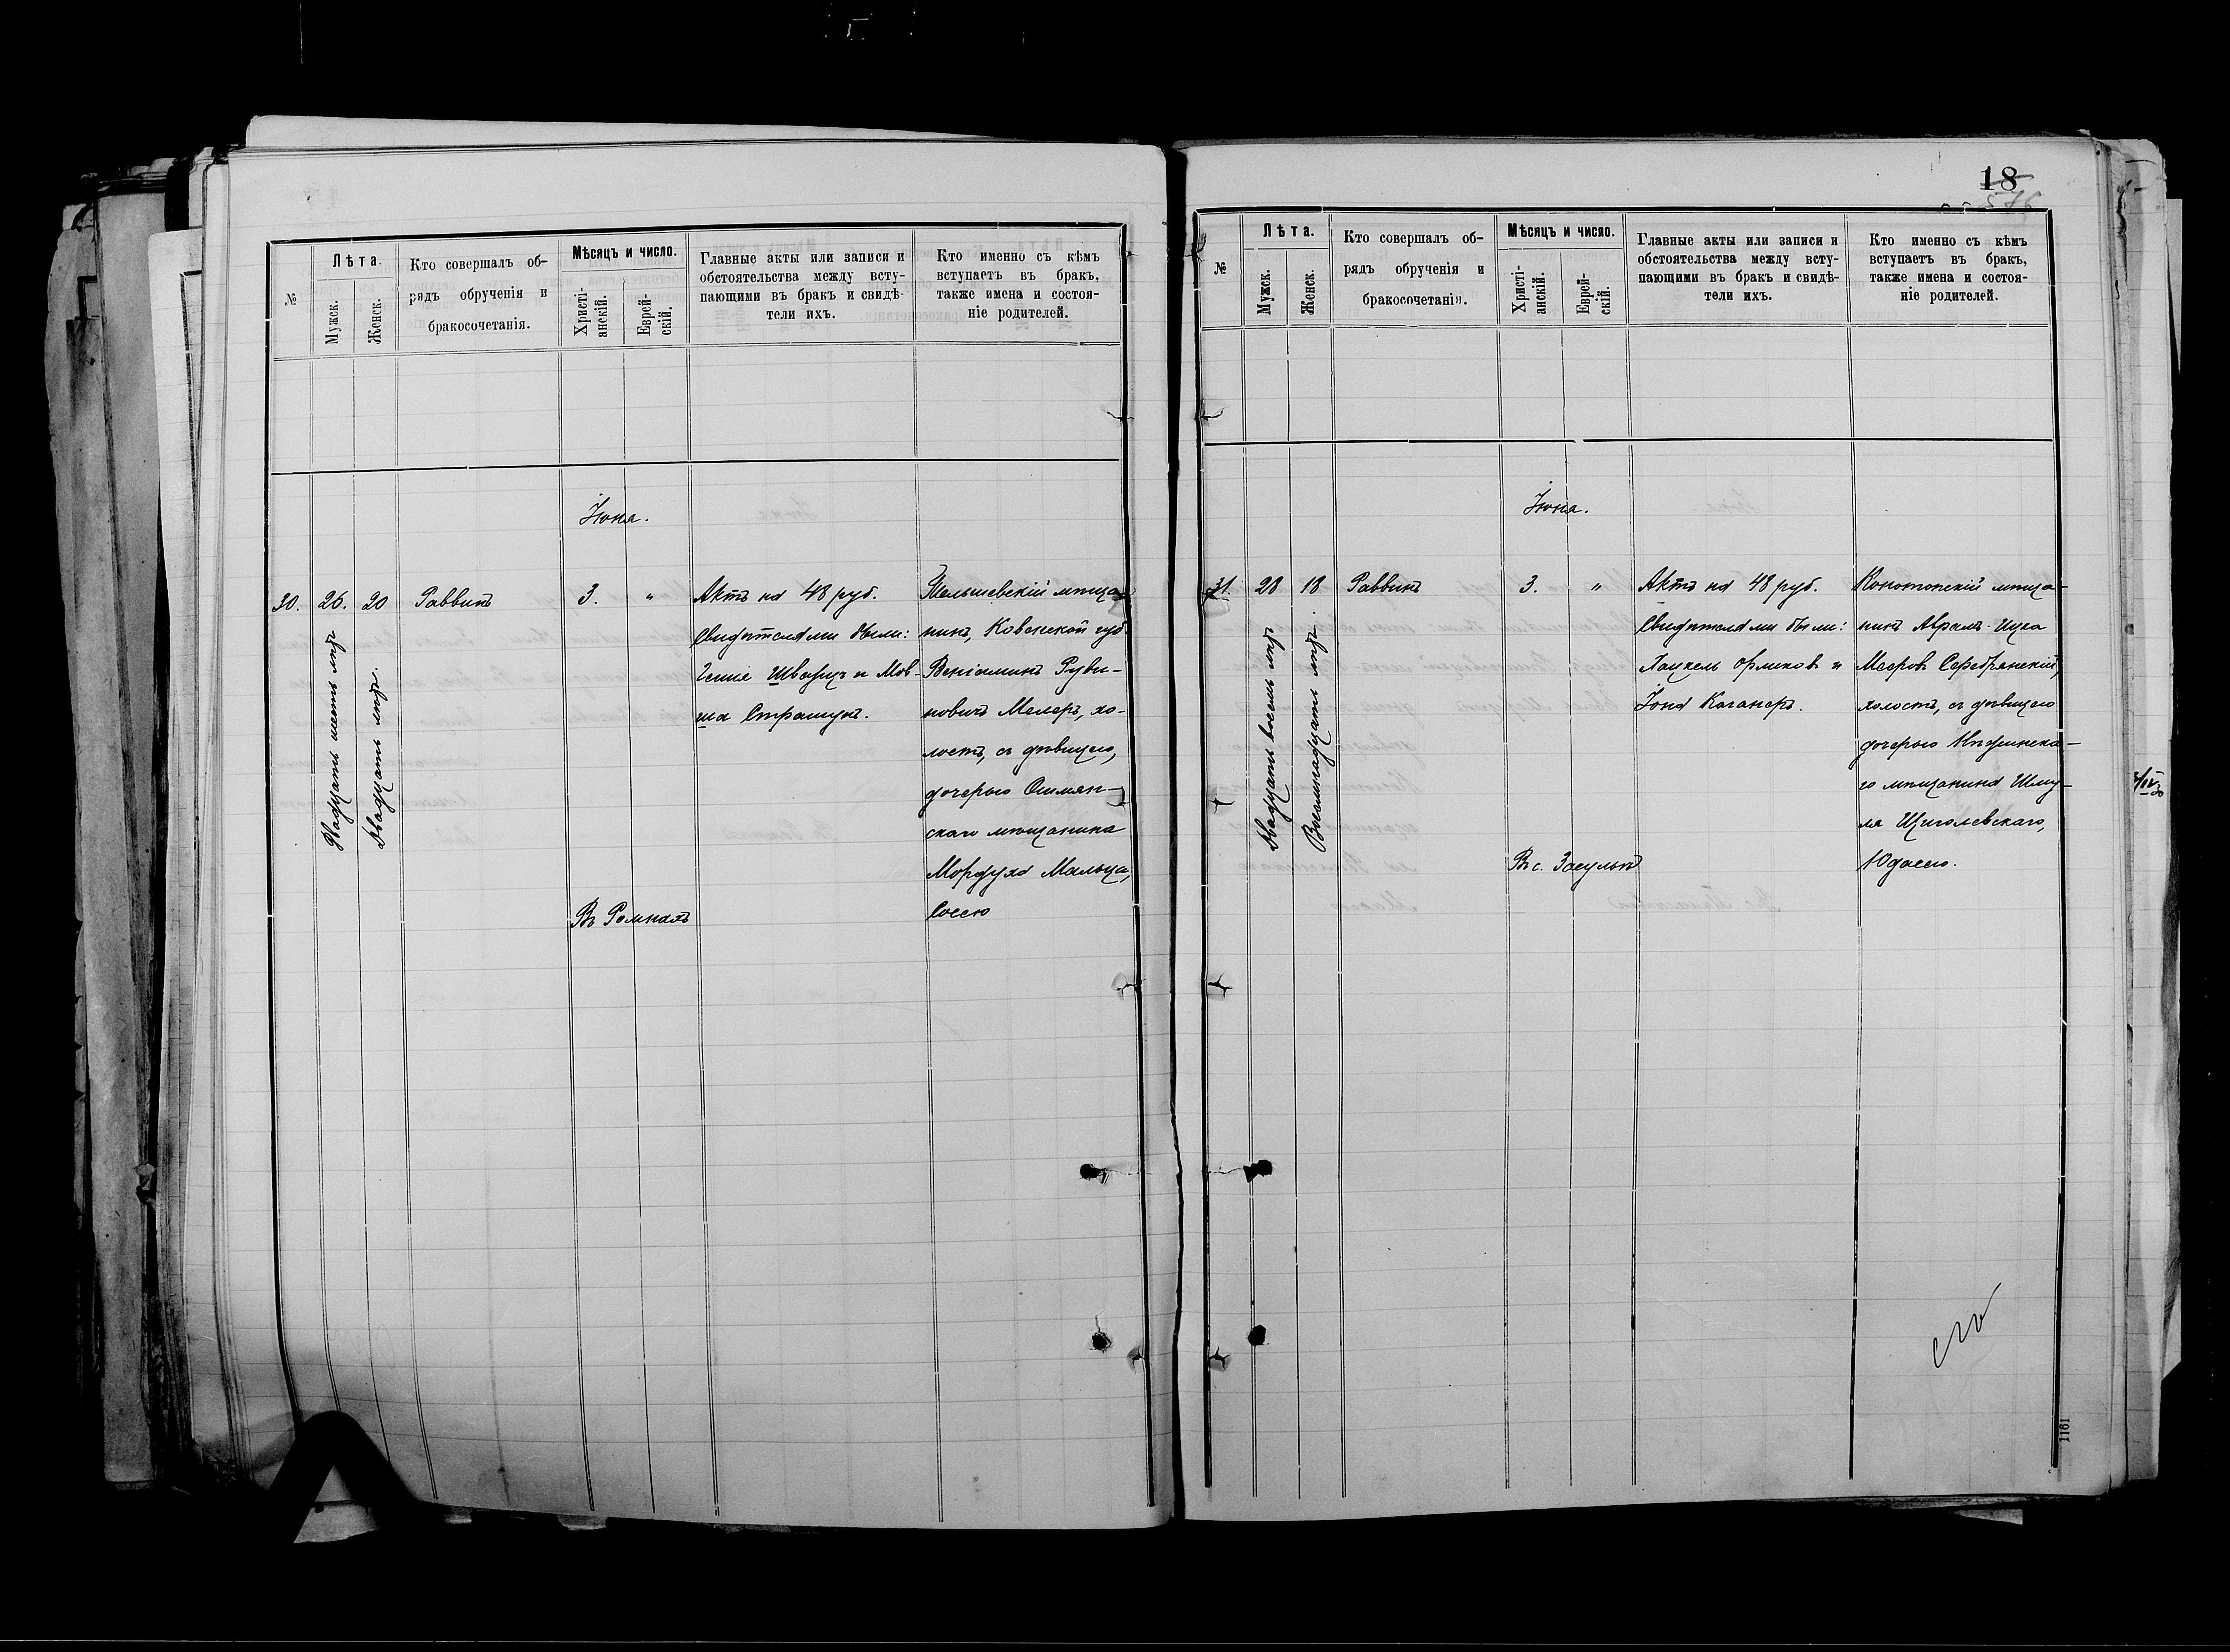 №
Лѣта
Мужск.
Женск.
Кто совершалъ об-
рядъ обрученія и
бракосочетанія.
Мѣсяцъ и число.
Христі-
анскій.
Еврей-
скій.
Главные акты или записи и
обстоятельства между всту-
пающими въ бракъ и свидѣ-
тели ихъ.
Кто именно съ кѣмъ
вступаетъ въ бракъ,
также имена и состоя-
ніе родителей.
Іюня.
30.
26.
Двадцать шесть лѣтъ
20
Двадцать лѣтъ.
Раввинъ
3.
"
Въ Ромнахъ
Актъ на 48 руб.
Свидѣтелями были:
Шварцъ и Мов-
ша Страшунъ.
мѣща-
нинъ, Ковенской губ.
Веніаминъ Руви-
новичъ Мелеръ, хо-
лостъ, съ дѣвицею,
дочерью Ошмян-
скаго мѣщанина
Мордуха Мальца,
Соссю
18
576
№
Лѣта.
Мужск.
Женск.
Кто совершалъ об-
рядъ обрученія и
бракосочетанія.
Мѣсяцъ и число.
Христі-
анскій.
Еврей-
скій.
Главные акты или записи и
обстоятельства между всту-
пающими въ бракъ и свидѣ-
тели ихъ.
Кто именно съ кѣмъ
вступаетъ въ бракъ,
также имена и состоя-
ніе родителей.
Іюня.
31.
28
Двадцать восемь лѣтъ
18
Восемнадцать лѣтъ.
Раввинъ
3.
"
Въ с. Засульѣ
Актъ на 48 руб.
Свидѣтелями были:
Хацкель Орликовъ и
Іона Каганеръ.
Конотопскій мѣща-
нинъ Абрамъ-Ицка
Мееровъ Серебрянскій,
холостъ, съ дѣвицею
дочерью Нѣжинска-
го мѣщанина Шму-
ля Щиголевскаго,
Юдассю.
1161